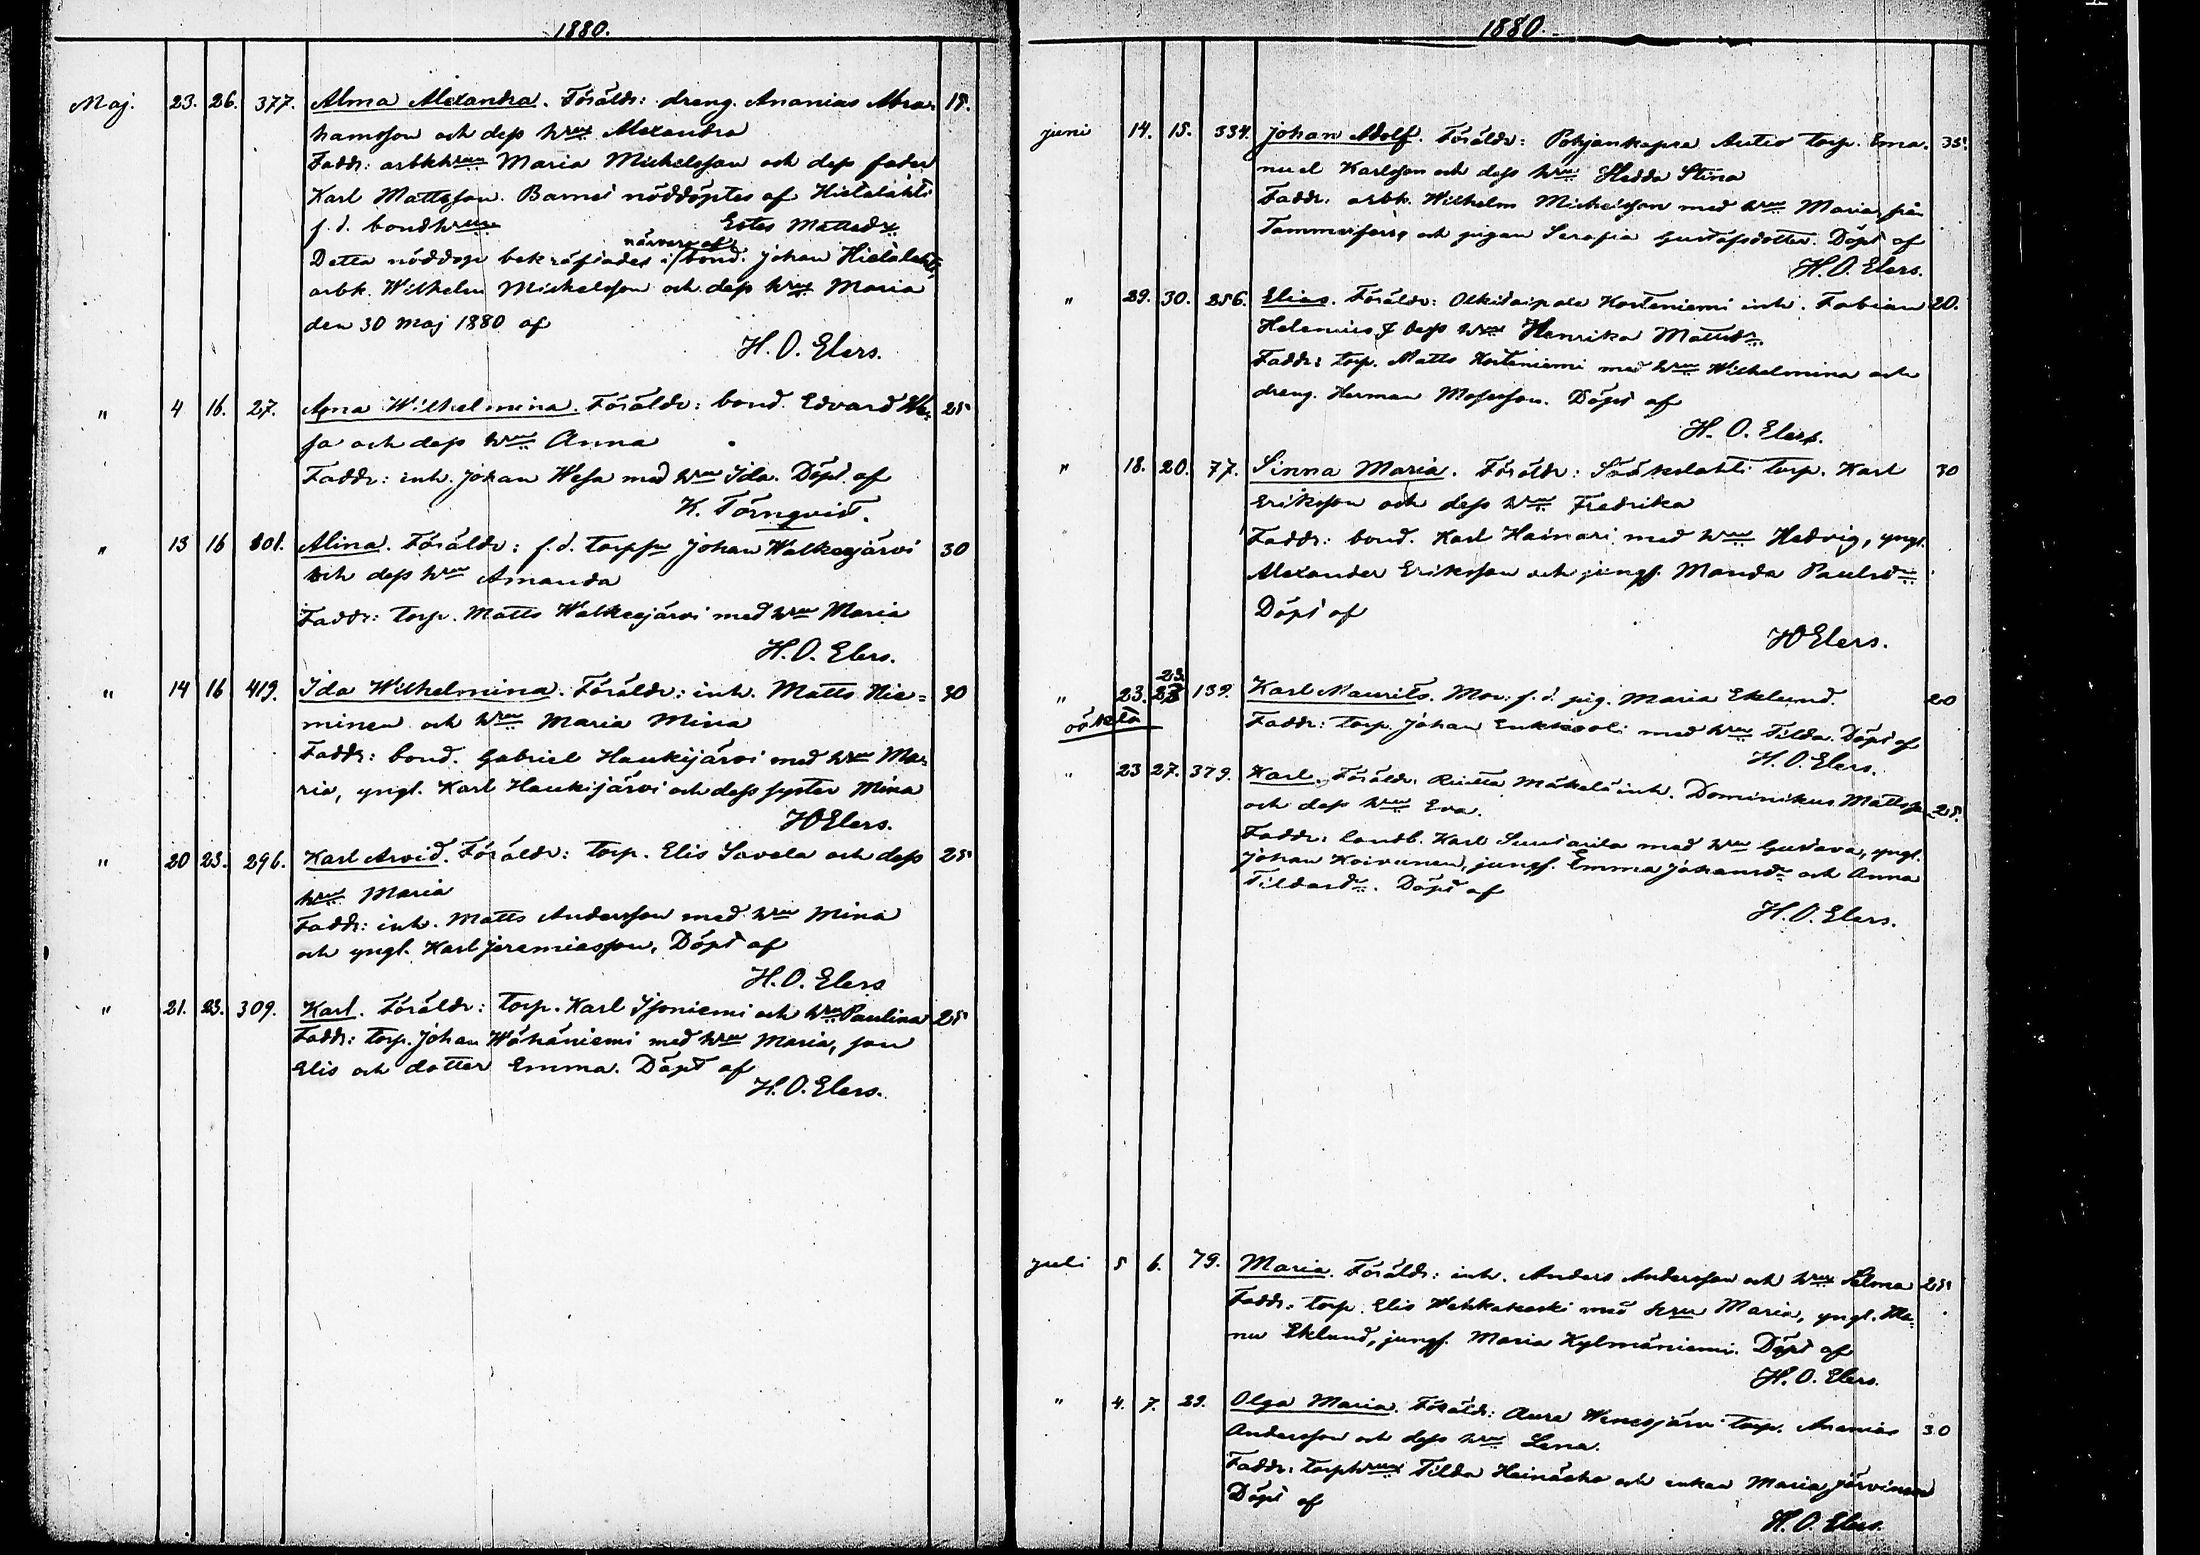 1880.
Maj. 23. 26. 377. Alma Alexandra. Föräldr: dreng. Ananias Abra- 15.
hamsson och dess hru Alexandra
Faddr: arbkhrun Maria Michelsson och dess fader
Karl Mattsson. Barnet nöddöptes af Hietalahti
f.d. bondhrun Estes Mattsdr
närvaro af
Detta nöddop bekräftades i bond. Johan Hietalahti,
arbk. Wilhelm Michelsson och dess hru Maria
den 30 Maj 1880 af
H. O. Elers.
" 4 16. 27. Agna Wilhelmina. Föräldr: bond. Edvard We- 25
sa och dess hru Anna
Faddr: inh. Johan Wesa med hru Ida. Döpt af
K. Törnqvist.
" 13 16 801. Alina. Föräldr: f.d. torpsn Johan Walkeajärvi 30
och dess hru Amanda
Faddr: torp. Matts Walkeajärvi med hru Maria
H. O. Elers.
" 14 16 419. Ida Wilhelmina. Föräldr: inh. Matts Nie= 30
minen och hru Maria Mina
Faddr: bond. Gabriel Haukijärvi med hru Ma-
ria, yngl. Karl Haukijärvi och dess syster Mina
HOElers.
" 20 23. 296. Karl Arvid. Föräldr: torp. Elis Savela och dess 25
hru Maria
Faddr: inh. Matts Andersson med hru Mina
och yngl. Karl Jeremiasson, Döpt af
H. O. Elers
" 21. 23. 309. Karl. Föräldr: torp. Karl Isoniemi och hru Paulina 25
Faddr: torp. Johan Wähäniemi med hru Maria, son
Elis och dotter Emma. Döpt af
H. O. Elers.
1880.
juni 14. 15. 334. Johan Adolf. Föräldr: Pohjankapea Autio torp. Ema- 35
nuel Karlsson och dess hru Hedda Stina
Faddr. arbk. Wilhelm Michelsson med hru Maria från
Tammerfors och pigan Serafia Gustafsdotter. Döpt af
H. O. Elers.
" 29. 30. 256. Elias. Föräldr: Korteniemi inh. Fabian 20.
Helenius & dess hru Henrika Mattsdr
Faddr: torp. Matts Korteniemi med hru Wilhelmina och
dreng. Herman Mosesson. Döpt af
H. O. Elers.
" 18. 20. 77. Sinna Maria. Föräldr: Sääkslahti torp. Karl 30
Eriksson och dess hru Fredrika
Faddr: bond. Karl Hainari med hru Hedvig, yngl.
Alexander Eriksson och jungf. Manda Paulsdr
Döpt af
HOElers.
23.
" 23. 23 139. Karl Maurits. Mor: f.d. pig. Maria Eklund. 20
oäkta Faddr: torp. Johan med hru Tilda. Döpt af
H. O. Elers.
" 23 27. 379. Karl. Föräldr. Mäkelä inh. Dominikus Mattsson 25.
och dess hru Eva.
Faddr: landb. Karl Suutarila med hru Gustava, yngl.
Johan Koivunen, jungf. Emma Johansdr och Anna
Döpt af
H. O. Elers.
Juli 5 6. 79. Maria. Föräldr: inh. Anders Andersson och hru Selma 25
Faddr: torp. Elis Wehkakoski med hru Maria, yngl. Ma-
nu Eklund, jungf. Maria Kylmäniemi. Döpt af
H. O. Elers.
" 4. 7. 29. Olga Maria. Föräldr: Aure Wenesjärvi torp. Ananias 30
Andersson och dess hru Lena.
Faddr: torphrun Tilda Heinäaho och enkan Maria Järvinen
Döpt af
H. O. Elers.